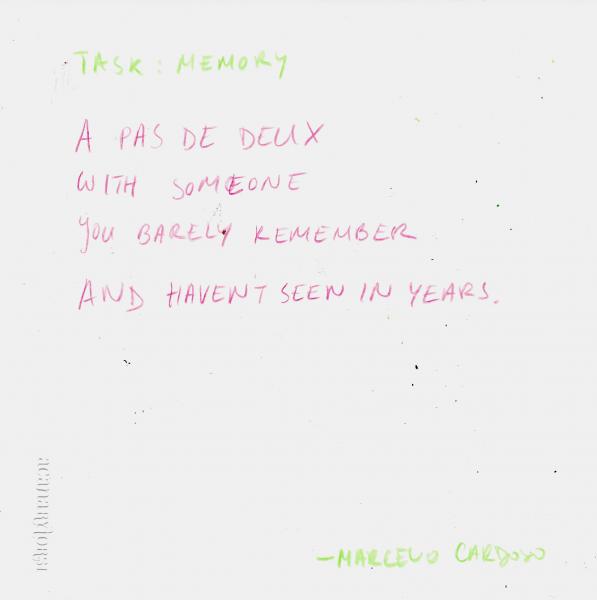 TASK: MEMORY
A PAS DE DEUX
WITH SOMEONE
YOU BARELY REMEMBER
AND HAVEN'T SEEN IN YEARS.
—MARCELO CARDOSO
acanarytorsi